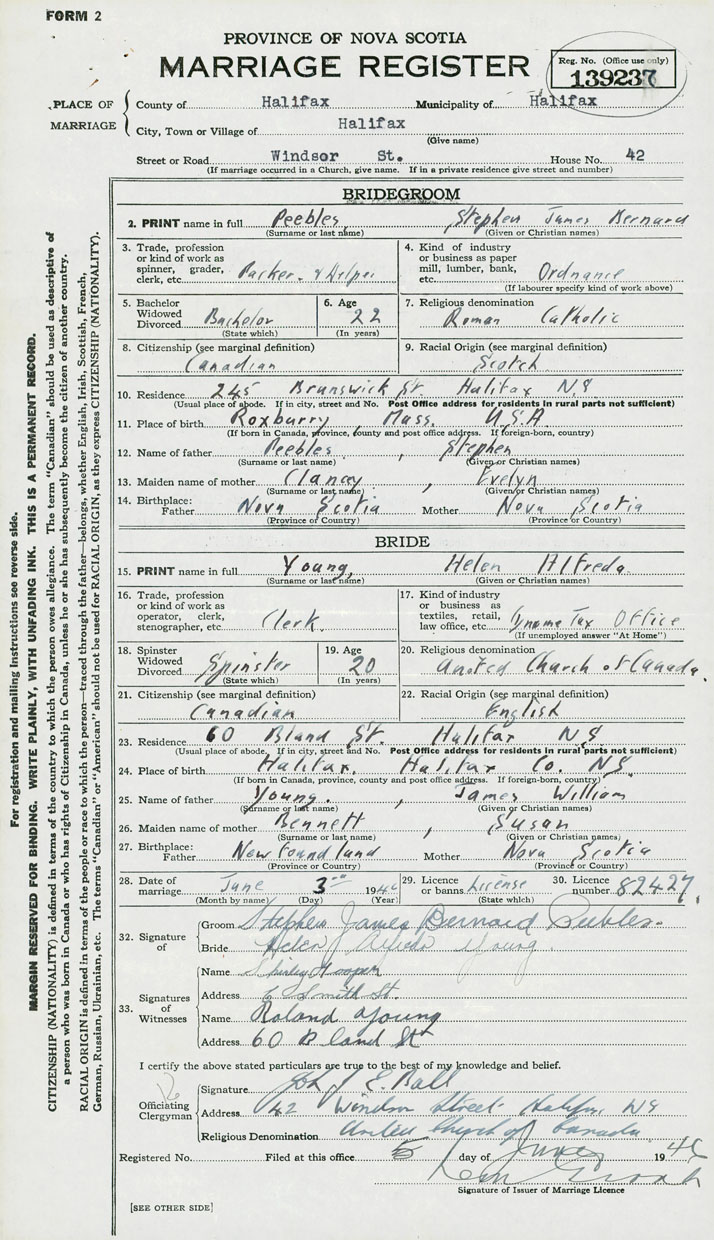 FORM 2
PROVINCE OF NOVA SCOTIA
MARRIAGE REGISTER
Reg. No. (Office use only)
139237
PLACE OF MARRIAGE
County of Halifax Municipality of Halifax
City, Town or Village of Halifax
(Give name)
Street or Road Windsor St. House No. 42
(If marriage occurred in a Church, give name. If in a private residence give street and number)
BRIDEGROOM
2. PRINT name in full Peebles, Stephen James Bernard
(Surname or last name) (Given or Christian names)
3. Trade, profession or kind of work as spinner, grader, clerk, etc. Packer & Helper
4. Kind of industry or business as paper mill, lumber, bank, etc. Ordnance
(If labourer specify kind of work above)
5. Bachelor Widowed Divorced Bachelor
(State which)
6. Age 22
(In years)
7. Religious denomination
Roman Catholic
8. Citizenship (see marginal definition)
Canadian
9. Racial Origin (see marginal definition)
Scotch
10. Residence 245 Brunswick St Halifax NS
(Usual place of abode. If in city, street and No. Post Office address for residents in rural parts not sufficient)
11. Place of birth Roxburry, Mass. U.S.A
(If born in Canada, province, county and post office address. If foreign-born, country)
12. Name of father Peebles, Stephen
(Surname or last name) (Given or Christian names)
13. Maiden name of mother Clancey, Evelyn
(Surname or last name) (Given or Christian names)
14. Birthplace: Father Nova Scotia Mother Nova Scotia
(Province or Country) (Province or Country)
BRIDE
15. PRINT name in full Young, Helen Alfreda
(Surname or last name) (Given or Christian names)
16. Trade, profession or kind of work as operator, clerk, stenographer, etc. Clerk.
17. Kind of industry or business as textiles, retail, law office, etc. Income Tax Office
(If unemployed answer "At Home")
18. Spinster Widowed Divorced Spinster
(State which)
19. Age 20
(In years)
20. Religious denomination
United Church of Canada.
21. Citizenship (see marginal definition)
Canadian
22. Racial Origin (see marginal definition)
English
23. Residence 60 Bland St. Halifax NS
(Usual place of abode. If in city, street and No. Post Office address for residents in rural parts not sufficient)
24. Place of birth Halifax, Halifax Co. NS.
(If born in Canada, province, county and post office address. If foreign-born, country)
25. Name of father Young, James William
(Surname or last name) (Given or Christian names)
26. Maiden name of mother Bennett, Susan
(Surname or last name) (Given or Christian names)
27. Birthplace: Father Newfoundland Mother Nova Scotia
(Province or Country) (Province or Country)
28. Date of marriage June 3rd 1946
(Month by name) (Day) (Year)
29. Licence or banns License
(State which)
30. Licence number 82427.
32. Signature of
Groom Stephen James Bernard Peebles.
Bride Helen Alfreda Young.
33. Signatures of Witnesses
Name Shirley Hooper
Address 6 Smith St.
Name Roland Young
Address 60 Bland St
I certify the above stated particulars are true to the best of my knowledge and belief.
Officiating Clergyman
Signature E. Ball
Address 42 Windsor Street Halifax, NS
Religious Denomination United Church of Canada
Registered No. Filed at this office 5 day of June 1946
Signature of Issuer of Marriage Licence
[SEE OTHER SIDE]
For registration and mailing instructions see reverse side.
MARGIN RESERVED FOR BINDING. WRITE PLAINLY, WITH UNFADING INK. THIS IS A PERMANENT RECORD.
CITIZENSHIP (NATIONALITY) is defined in terms of the country to which the person owes allegiance. The term "Canadian" should be used as descriptive of
a person who was born in Canada or who has rights of Citizenship in Canada, unless he or she has subsequently become the citizen of another country.
RACIAL ORIGIN is defined in terms of the people or race to which the person—traced through the father—belongs, whether English, Irish, Scottish, French,
German, Russian, Ukrainian, etc. The terms "Canadian" or "American" should not be used for RACIAL ORIGIN, as they express CITIZENSHIP (NATIONALITY).